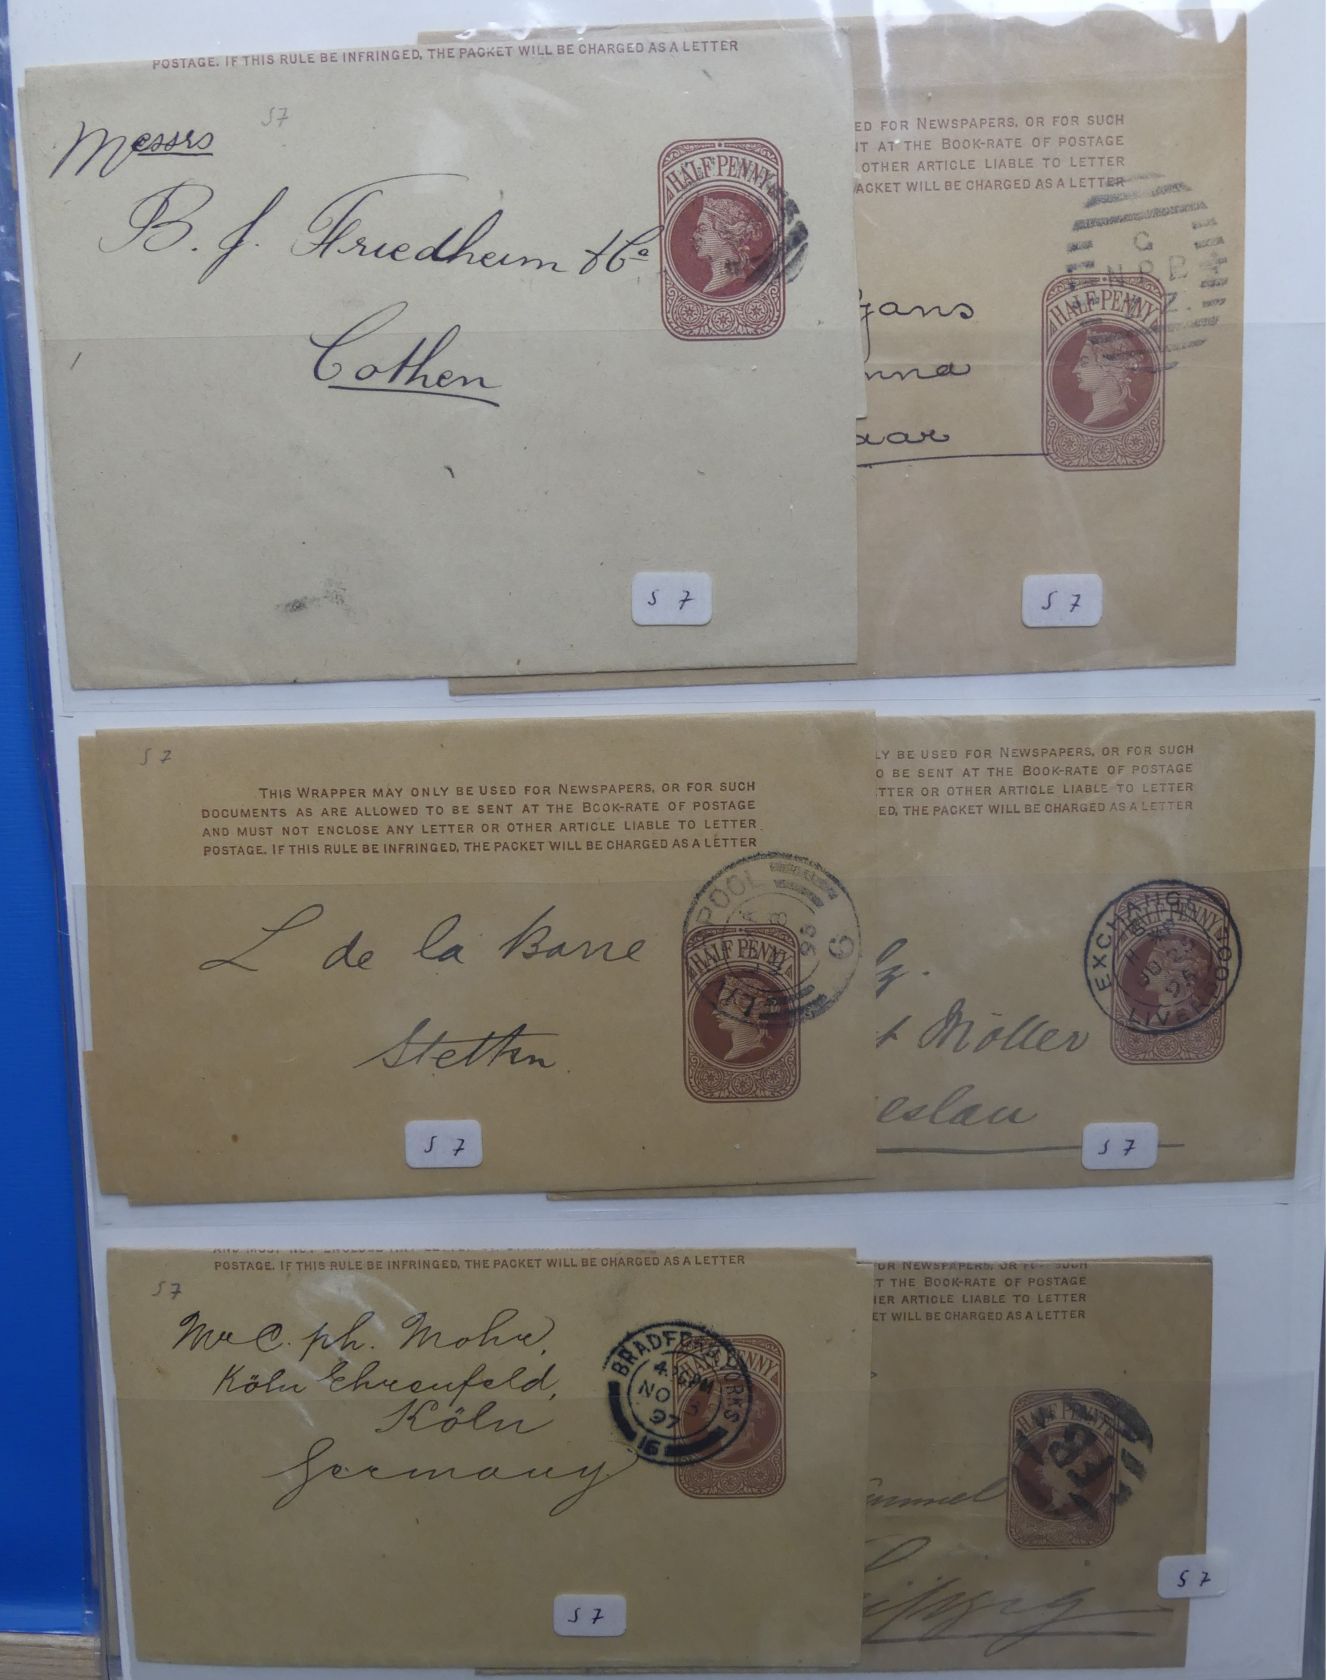 POSTAGE. IF THIS RULE BE INFRINGED, THE PACKET WILL BE CHARGED AS A LETTER
S 7
Messrs
B. J. Friedheim & Co
Cothen
HALF PENNY
S 7
ED FOR NEWSPAPERS, OR FOR SUCH
NT AT THE BOOK-RATE OF POSTAGE
OTHER ARTICLE LIABLE TO LETTER
PACKET WILL BE CHARGED AS A LETTER
C
N P B
Z
HALF PENNY
gans
nna
aar
S 7
S 7
THIS WRAPPER MAY ONLY BE USED FOR NEWSPAPERS, OR FOR SUCH
DOCUMENTS AS ARE ALLOWED TO BE SENT AT THE BOOK-RATE OF POSTAGE
AND MUST NOT ENCLOSE ANY LETTER OR OTHER ARTICLE LIABLE TO LETTER
POSTAGE. IF THIS RULE BE INFRINGED, THE PACKET WILL BE CHARGED AS A LETTER
L de la Barre
Stettin
POOL
95
6
HALF PENNY
S 7
LY BE USED FOR NEWSPAPERS, OR FOR SUCH
O BE SENT AT THE BOOK-RATE OF POSTAGE
TTER OR OTHER ARTICLE LIABLE TO LETTER
ED, THE PACKET WILL BE CHARGED AS A LETTER
EXCHANGE
LIVERPOOL
HALF PENNY
t Möller
eslau
S 7
POSTAGE. IF THIS RULE BE INFRINGED, THE PACKET WILL BE CHARGED AS A LETTER
S 7
Mr C. ph. Mohr,
Köln Ehrenfeld,
Köln
Germany
BRADFORD YORKS
NO
97
16
HALF PENNY
S 7
OR NEWSPAPERS, OR FOR SUCH
T THE BOOK-RATE OF POSTAGE
HER ARTICLE LIABLE TO LETTER
ET WILL BE CHARGED AS A LETTER
HALF PENNY
ummel
eipzig
S 7